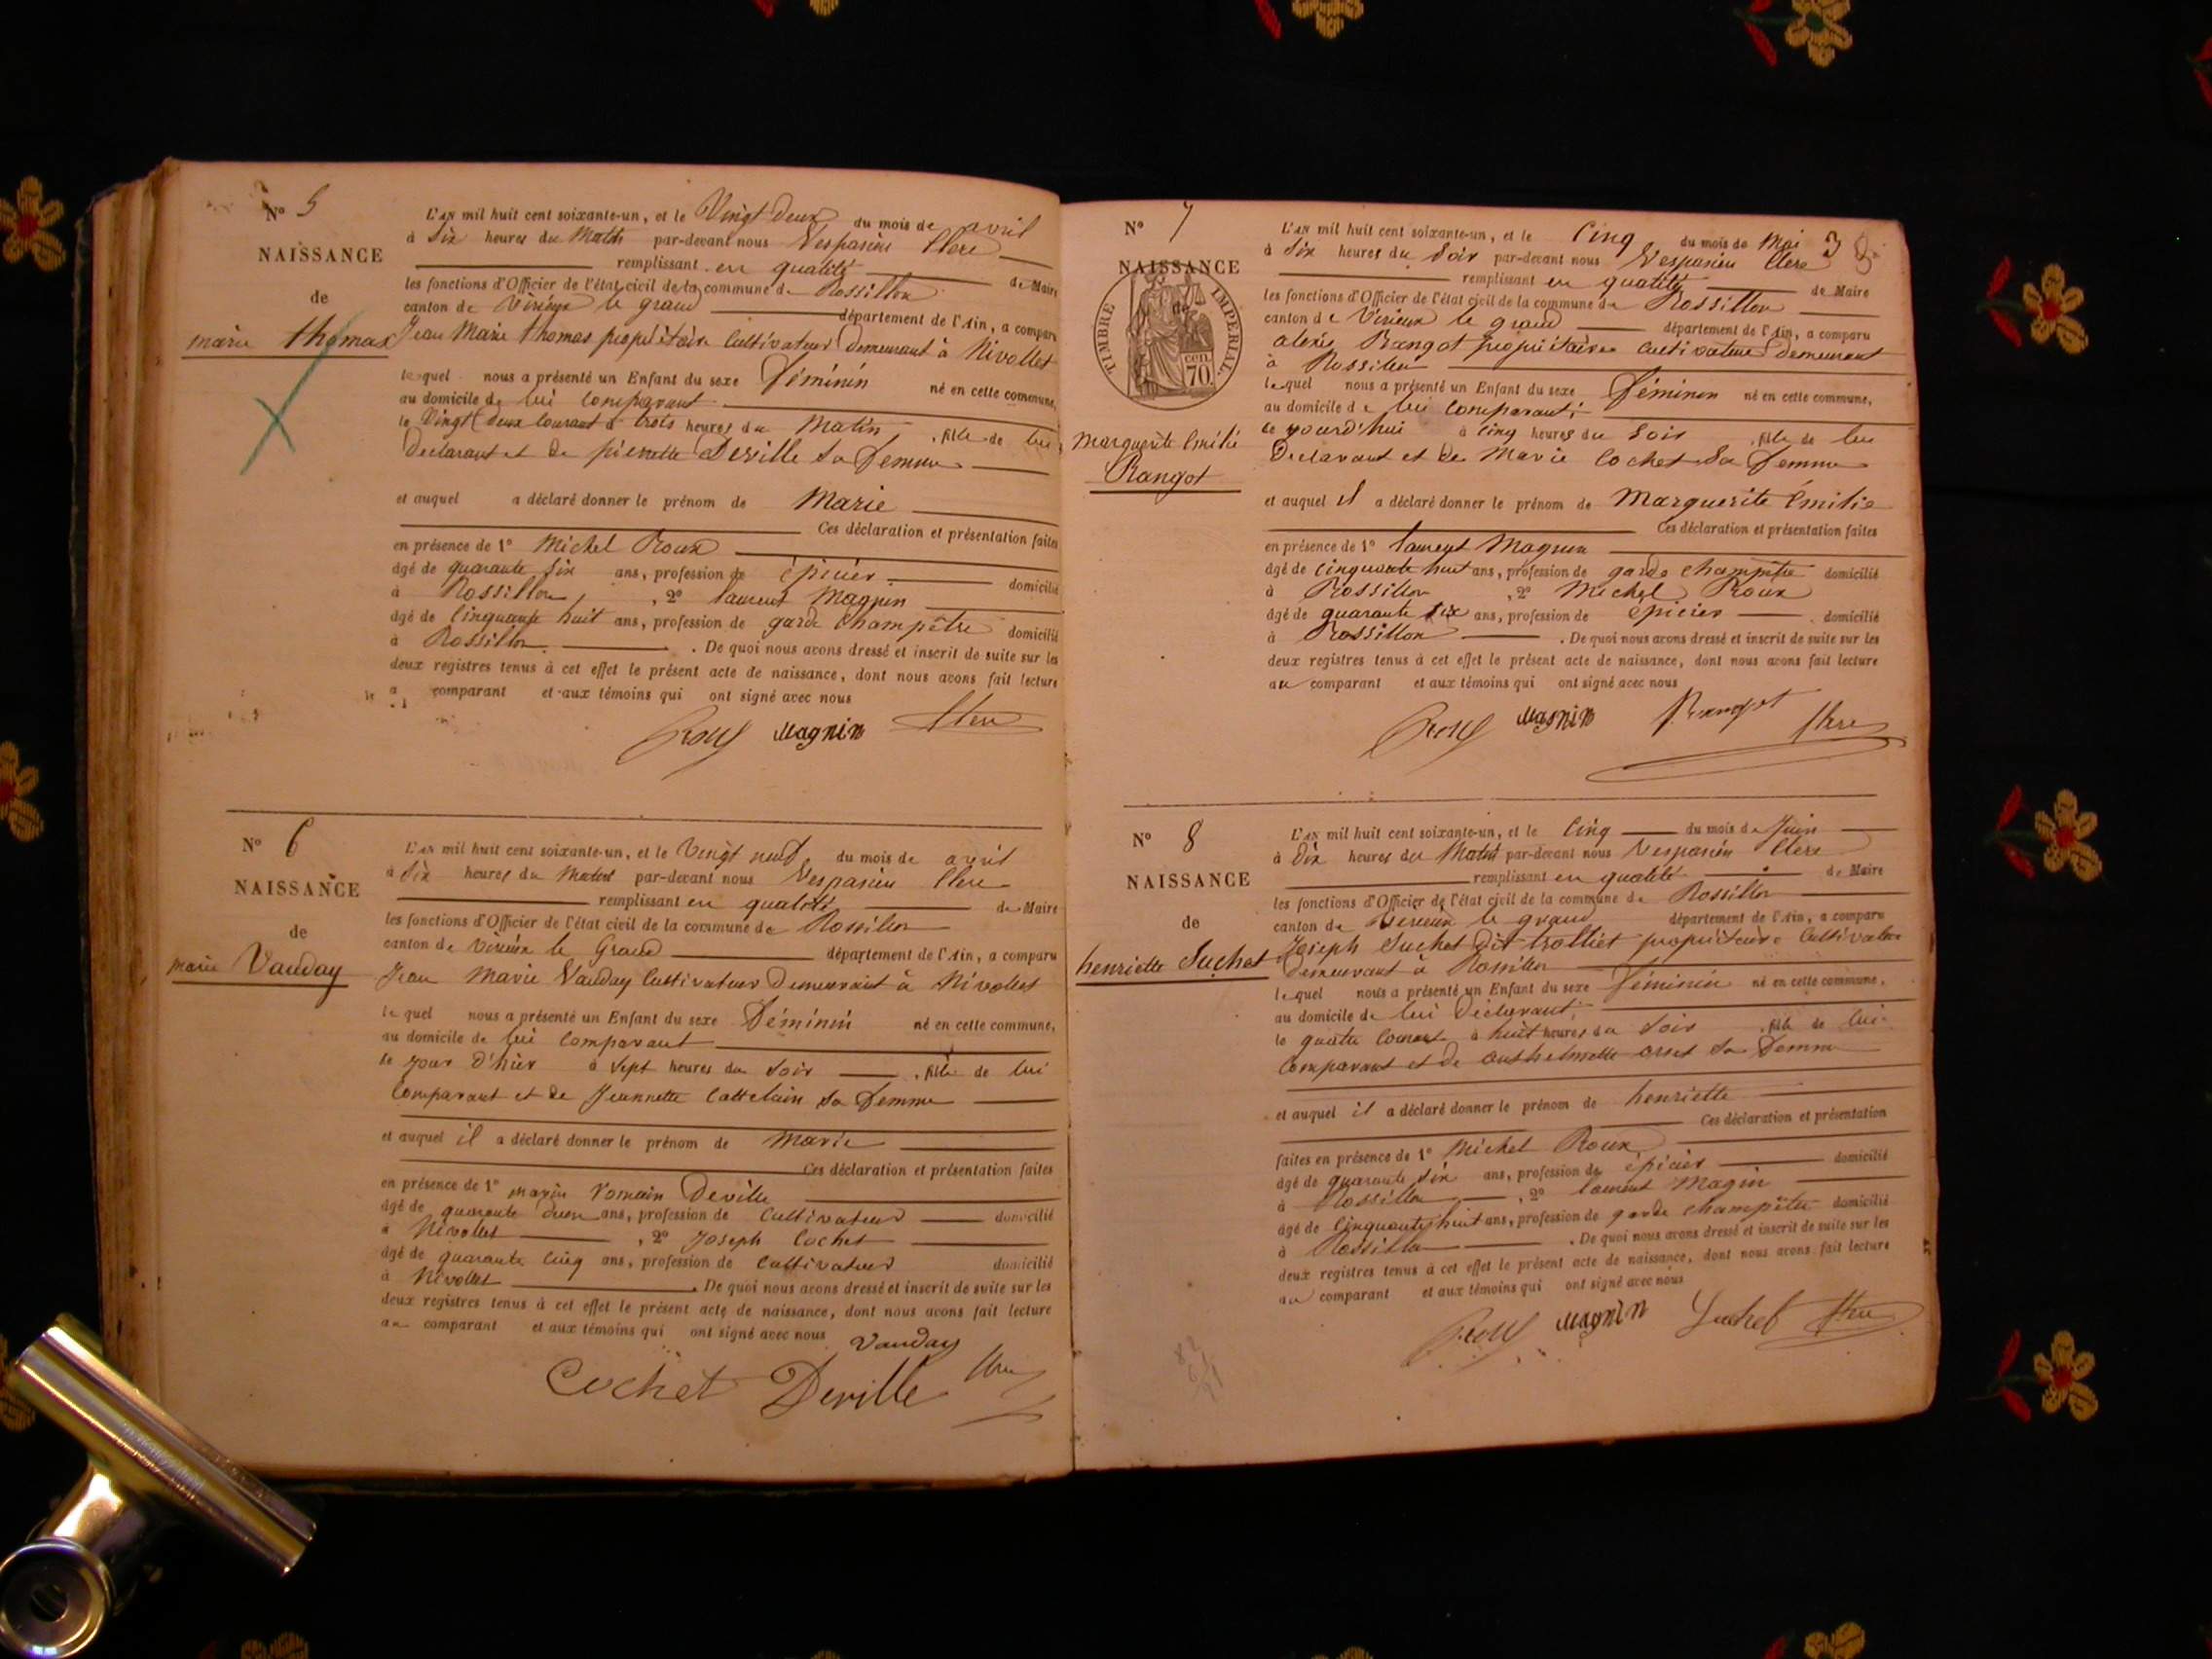 N° 5
NAISSANCE
de
marie thomas
L'AN mil huit cent soixante-un, et le Vingt Deux du mois de avril
à Six heures du Matin par-devant nous Vespasien Clerc
remplissant en qualité de Maire
les fonctions d'Officier de l'état civil de la commune de Rossillon
canton de Virieux le grand département de l'Ain, a comparu
Jean Marie thomas propriétaire Cultivateur Demeurant à Nivollet
lequel nous a présenté un Enfant du sexe Féminin né en cette commune,
au domicile de lui comparant
le Vingt Deux Courant à trois heures du Matin, fille de lui
Declarant et de pierrette Deville Sa Femme
et auquel a déclaré donner le prénom de Marie
Ces déclaration et présentation faites
en présence de 1° Michel Roux
âgé de quarante Six ans, profession de épicier domicilié
à Rossillon, 2° laurent Magnin
âgé de Cinquante huit ans, profession de garde Champêtre domicilié
à Rossillon. De quoi nous avons dressé et inscrit de suite sur les
deux registres tenus à cet effet le présent acte de naissance, dont nous avons fait lecture
a comparant et aux témoins qui ont signé avec nous
Roux Magnin Clerc
N° 6
NAISSANCE
de
marie Vauday
L'AN mil huit cent soixante-un, et le Vingt neuf du mois de avril
à Six heures du Matin par-devant nous Vespasien Clerc
remplissant en qualité de Maire
les fonctions d'Officier de l'état civil de la commune de Rossillon
canton de Virieux le Grand département de l'Ain, a comparu
Jean Marie Vauday Cultivateur Demeurant à Nivollet
lequel nous a présenté un Enfant du sexe Féminin né en cette commune,
au domicile de lui Comparant
le jour d'hier à Sept heures du Soir, fille de lui
Comparant et de Jeannette Cattelain Sa Femme
et auquel il a déclaré donner le prénom de Marie
Ces déclaration et présentation faites
en présence de 1° marin Romain Deville
âgé de quarante deux ans, profession de Cultivateur domicilié
à Nivollet, 2° Joseph Cochet
âgé de quarante Cinq ans, profession de Cultivateur domicilié
à Nivollet. De quoi nous avons dressé et inscrit de suite sur les
deux registres tenus à cet effet le présent acte de naissance, dont nous avons fait lecture
au comparant et aux témoins qui ont signé avec nous
Vauday
Cochet Deville Clerc
N° 7
NAISSANCE
de
TIMBRE IMPERIAL
cen.
70.
Marguerite Emilie
Rangot
3
L'AN mil huit cent soixante-un, et le Cinq du mois de Mai
à Six heures du Soir par-devant nous Vespasien Clerc
remplissant en qualité de Maire
les fonctions d'Officier de l'état civil de la commune de Rossillon
canton de Virieux le grand département de l'Ain, a comparu
alexis Rangot propriétaire Cultivateur demeurant
à Rossillon
lequel nous a présenté un Enfant du sexe Féminin né en cette commune,
au domicile de lui Comparant;
le jourd'hui à Cinq heures du Soir, fille de lui
Declarant et de Marie Cochet Sa Femme
et auquel il a déclaré donner le prénom de Marguerite Émilie
Ces déclaration et présentation faites
en présence de 1° laurent Magnin
âgé de Cinquante huit ans, profession de garde Champêtre domicilié
à Rossillon, 2° Michel Roux
âgé de quarante Six ans, profession de épicier domicilié
à Rossillon. De quoi nous avons dressé et inscrit de suite sur les
deux registres tenus à cet effet le présent acte de naissance, dont nous avons fait lecture
au comparant et aux témoins qui ont signé avec nous
Roux Magnin Rangot Clerc
N° 8
NAISSANCE
de
henriette Suchet
L'AN mil huit cent soixante-un, et le Cinq du mois de Juin
à Six heures du Matin par-devant nous Vespasien Clerc
remplissant en qualité de Maire
les fonctions d'Officier de l'état civil de la commune de Rossillon
canton de Virieux le grand département de l'Ain, a comparu
Joseph Suchet Dit trolliet propriétaire Cultivateur
Demeurant à Rossillon
lequel nous a présenté un Enfant du sexe Féminin né en cette commune,
au domicile de lui Déclarant;
le quatre Courant à huit heures du Soir, fille de lui
Comparant et de Sa Femme
et auquel il a déclaré donner le prénom de henriette
Ces déclaration et présentation
faites en présence de 1° Michel Roux
âgé de quarante Six ans, profession de épicier domicilié
à Rossillon, 2° laurent Magnin
âgé de Cinquante huit ans, profession de garde champêtre domicilié
à Rossillon. De quoi nous avons dressé et inscrit de suite sur les
deux registres tenus à cet effet le présent acte de naissance, dont nous avons fait lecture
au comparant et aux témoins qui ont signé avec nous
Roux Magnin Suchet Clerc